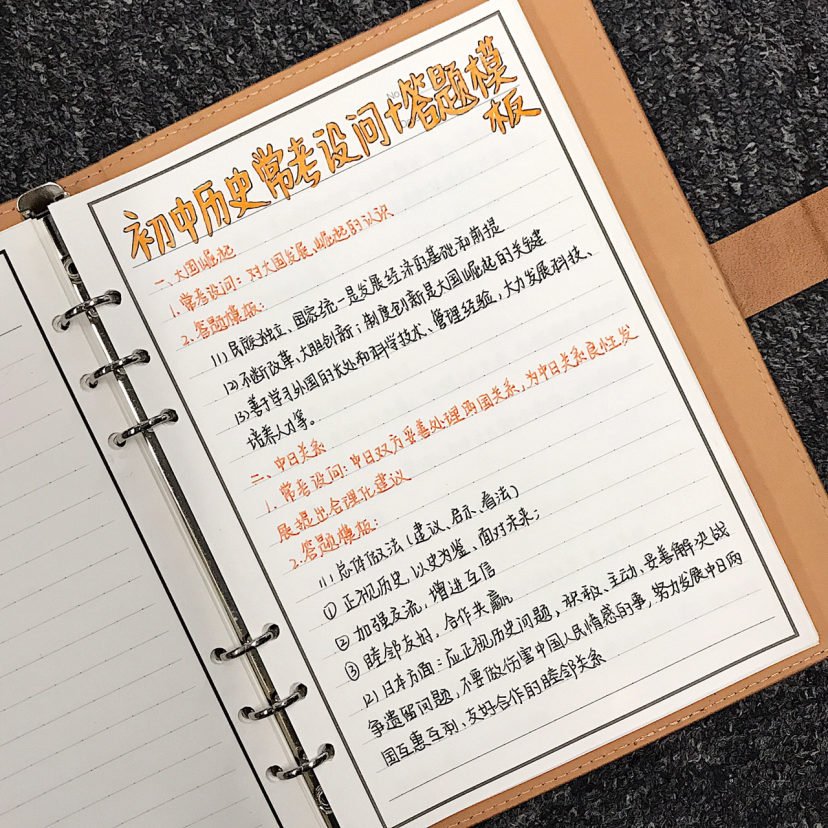 初中历史常考设问+答题模
板
No
一、大国崛起
1.常考设问：对大国发展、崛起的认识
2.答题模板：
(1)民族独立、国家统一是发展经济的基础和前提
(2)不断改革、大胆创新；制度创新是大国崛起的关键
(3)善于学习外国的长处和科学技术、管理经验，大力发展科技、
培养人才等。
二、中日关系
1.常考设问：中日双方妥善处理两国关系，为中日关系良性发
展提出合理化建议
2.答题模板：
(1)总体做法（建议、启示、看法）
①正视历史，以史为鉴、面对未来；
②加强交流，增进互信
③睦邻友好，合作共赢
(2)日本方面：应正视历史问题，积极、主动、妥善解决战
争遗留问题，不要做伤害中国人民情感的事，努力发展中日两
国互惠互利，友好合作的睦邻关系